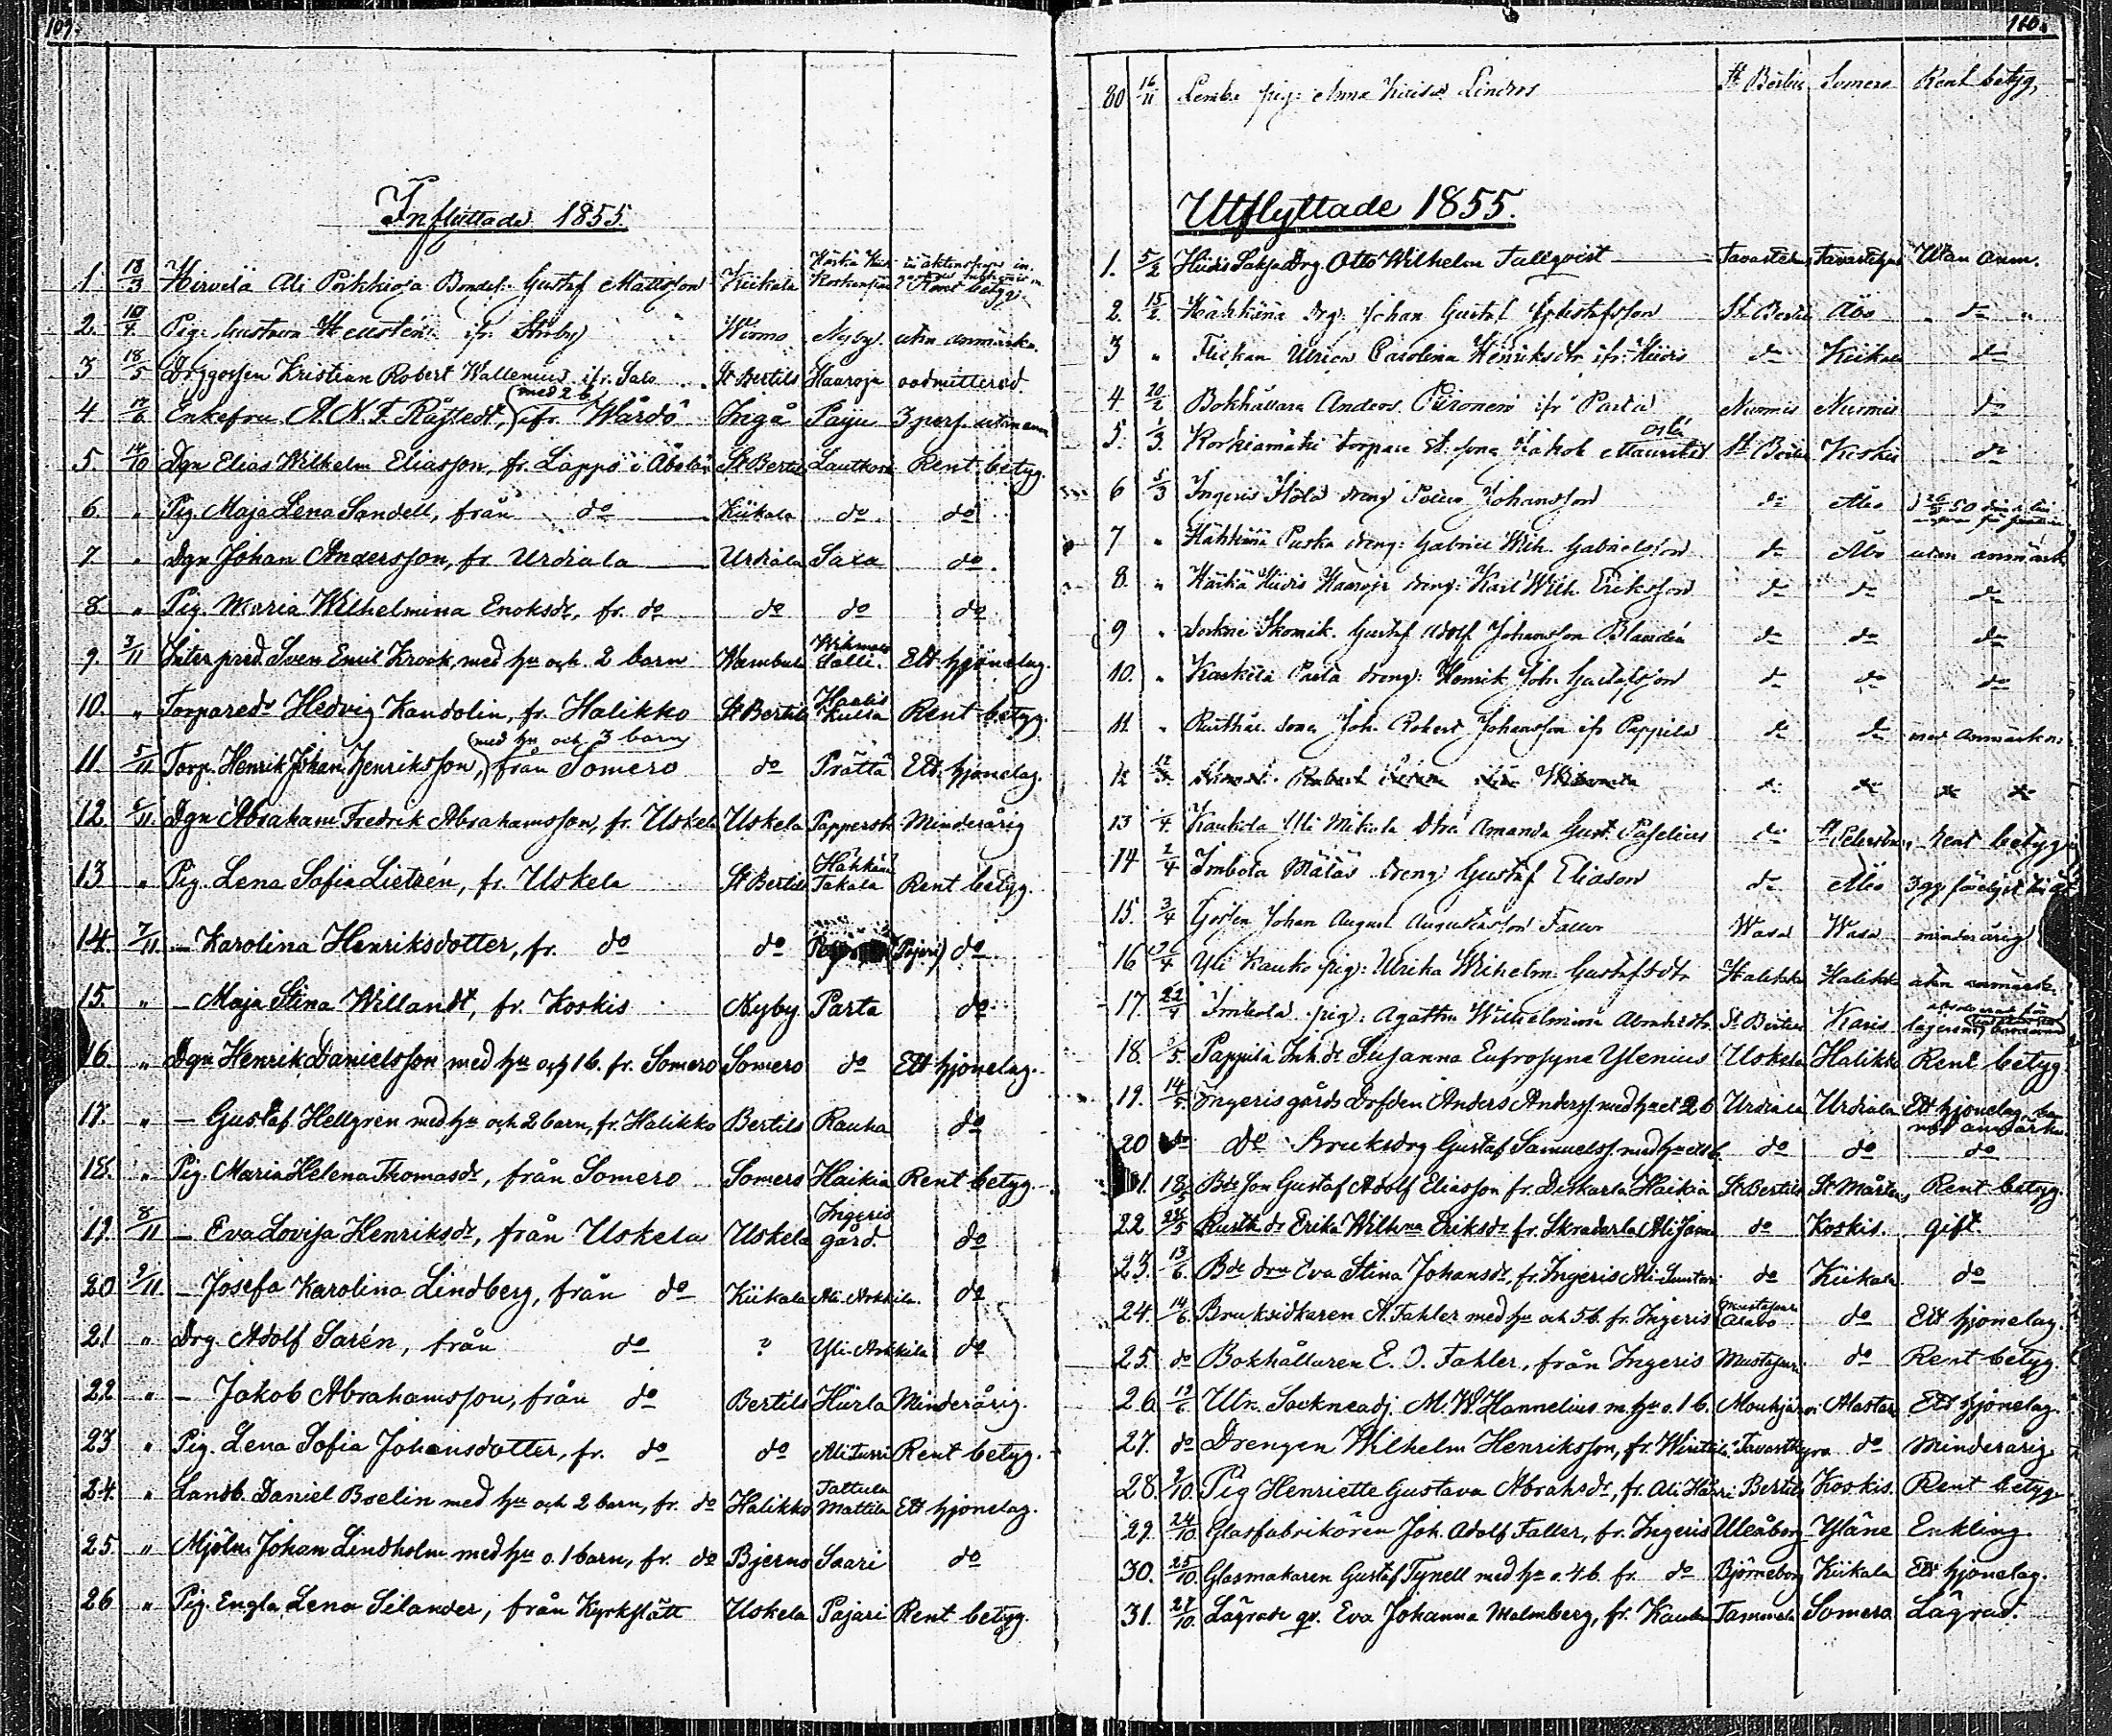 109.
Inflyttade 1855.
1. 18/3 Hirvelä Ali Pörkhioja Bondes. Gustaf Mattsson Kiikala
2. 10/4 Pig. Gustava Hellstén Wirmo Nyby utan anmärkn.
3 18/5 Drggossen Kristian Robert Wallenius ifr. Salo St Bertils Haaroja oadmitterad.
4 17/6 Enkefru A. N. F. Råstedt, (med 2 b.) ifr Wårdö Ingå Paiju 3 pers. utan anm
5 14/10 Dgn Elias Wilhelm Eliasson, fr. Lappo i Åbolän St Bertils Lautkoski Rent betyg.
6. " Pig. Maja Lena Sandell, från do Kiikala do do
7. " Dgn Johan Andersson, fr Urdiala Urdiala Saxa do
8 " Pig. Maria Wilhelmina Enoksdr, fr. do do do do
9. 3/11 Inter pred. Sven Emil Krook, med hu och 2 barn Nembula Salli. Ett hjonelag.
10. " Torparedr Hedvig Kandolin, fr. Halikko St Bertils Rent betyg.
11. 5/11 Torp. Henrik Johan Henriksson, (med hu och 3 barn) från Somero do Prättä Ett hjonelag.
12 6/11. Dgn Abraham Fredrik Abrahamsson, fr. Uskela Uskela Papperstr Minderårig
13 " Pig. Lena Sofia Lietzén, fr. Uskela St Bertils Hähkänä Takala Rent betyg.
14. 7/11. – Karolina Henriksdotter, fr. do do (Pajari) do
15. " – Maja Stina Willandt, fr. Koskis Nyby Parta do
16. " Dgn Henrik Danielsson med hu och 1 b. fr. Somero Somero do Ett hjonelag.
17. " – Gustaf Hellgren med hu och 2 barn, fr. Halikko Bertils Rauha do
18. " Pig. Maria Helena Thomasdr, från Somero Somero Haikia Rent betyg.
19. 8/11 – Eva Lovisa Henriksdr, från Uskela Uskela Ingeris gård. do
20 9/11. – Josefa Karolina Lindberg, från do Kiikala Ali-Arkkila. do
21 " Drg. Adolf Sarén, från do ? Yli-Arkkila do
22 " – Jakob Abrahamsson, från do Bertils Hiirla Minderårig.
23 " Pig. Lena Sofia Johansdotter, fr. do do Rent betyg.
24. " Landb. Daniel Boelin med hu och 2 barn, fr. do Halikko Tattula Mattila Ett hjonelag.
25. " Mjöln. Johan Lindholm med hu o. 1 barn, fr. do Bjerno Saari do
26 " Pig. Engla Lena Silander, från Kyrkslätt Uskela Pajari Rent betyg.
110.
80 16/11 pig: Anna Lindros St Bertils Somero Rent betyg,
Utflyttade 1855.
1. 5/2 Hiidis Saksa Drg. Otto Wilhelm Tallqvist Tavastehus Tavastkyro Utan anm.
2. 15/2 Hähkänä drg: Johan Gustaf Gustafsson St Bertils Åbo " do "
3 " Flickan Ulrica Carolina Henriksdr ifr: Hiidis do Kiikala do
4. 20/2 Bokhållare Anders Piironen ifr Parta Nurmis Nurmis do
5. 1/3 St Bertils Koskis do
6 5/3 Ingeris dreng Johansson do Åbo
7 " Hähkänä Puska dreng: Gabriel Wilh. Gabrielsson do Åbo utan anmärk
8. " Hiidis Haaroja dreng: Karl Wilh. Eriksson do do do
9 " Gustaf Adolf Johansson do do do
10. " Parta dreng: Henrik Joh. Gustafsson do do do
11. " Joh. Robert Johansson ifr Pappila do do med anmärkn:
12 12/3
13 1/4. Kaukola Yli Mikola Amanda Gust. Paselius do St Petersburg, rent betyg
14 2/4 Dreng Gustaf Eliason do Åbo
15. 3/4 Gossen Johan August Augustsson Faller Wasa Wasa minderårig
16 Yli Kauko pig: Ulrika Wilhelm: Gustafsdr Halikko Halikko utan anmärk.
17. 22/4 pig: Agatha Wilhelmina Abrahsdr. St Bertils Karis
18. Pappila Inh.dr Susanna Eufrosyne Ylenius Uskela Halikko Rent betyg
19. 14/5. Ingeris gårds Drfden Anders Anderss. med hu et 2 b Urdiala Urdiala Ett hjonelag
20 do do Bruksdrg Gustaf Samuelss. med hu do do do
21. 18/5 Bdeson Gustaf Adolf Eliasson fr. Deskarla Haikia St Bertils St Mårtens Rent betyg.
22 Rusth dr Erika Wilhna Eriksdr fr. Skradarla do Koskis. gift.
23. 13/6. Bde Eva Stina Johansdr, fr. Ingeris do Kiikala do
24. 14/6. Bruksidkaren A. Fahler med hu och 5 b. fr. Ingeris Mustasaari do Ett hjonelag.
25. do Bokhållaren E. O. Fahler, från Ingeris Mustasaari do Rent betyg.
26. Utn. Sockneadj. M. W. Hannelius m. hu o. 1 b. Mouhijärvi Alastaro Ett hjonelag.
27. do Drengen Wilhelm Henriksson, fr. Tavastkyro do Minderårig.
28. 9/10. Pig Henriette Gustava Abrahsdr, fr. Ali Bertils Koskis. Rent betyg.
29. 24/10. Glasfabrikören Joh. Adolf Faller, fr. Ingeris Uleåborg Yläne Enkling.
30. 25/10. Glasmakaren Gustaf Tynell med hu o. 4 b. fr. do Björneborg Kiikala Ett hjonelag.
31. 27/10. Lägrade qv. Eva Johanna Malmberg, fr. Tammela Somero Lägrad.